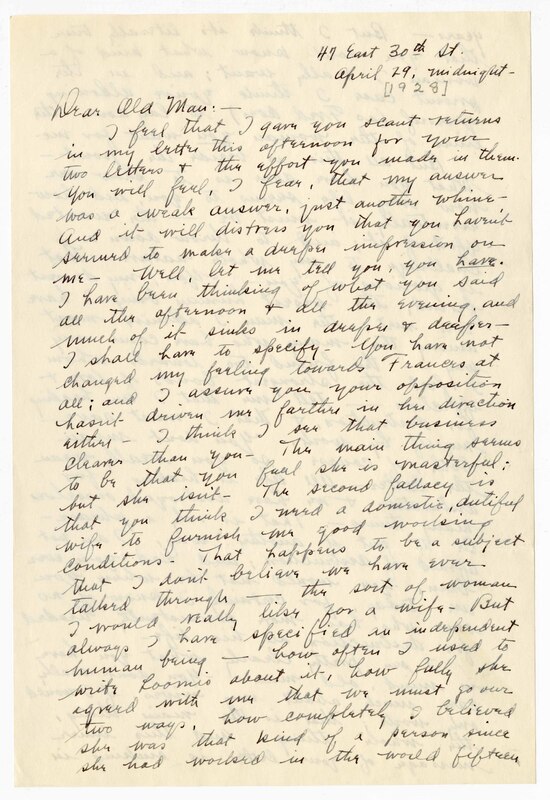 47 East 30th St.
April 29, midnight -
[1928]
Dear Old Man: -
I feel that I gave you scant returns
in my letter this afternoon for your
two letters & the effort you made in them.
You will feel, I fear, that my answer
was a weak answer, just another whine -
And it will distress you that you haven't
seemed to make a deeper impression on
me - Well, let me tell you, you have.
I have been thinking of what you said
all the afternoon & all the evening, and
much of it sinks in deeper & deeper -
I shall have to specify - You have not
changed my feeling towards Frances at
all; and I assure you your opposition
hasn't driven me farther in her direction
either - I think I see that business
clearer than you - The main thing seems
to be that you feel she is masterful;
but she isn't - The second fallacy is
that you think I need a domestic, dutiful
wife to furnish me good working
conditions - That happens to be a subject
that I don't believe we have ever
talked through — the sort of woman
I would really like for a wife - But
always I have specified an independent
human being — how often I used to
write Loomis about it, how fully she
agreed with me that we must go our
two ways, how completely I believed
she was that kind of a person since
she had worked in the world fifteen